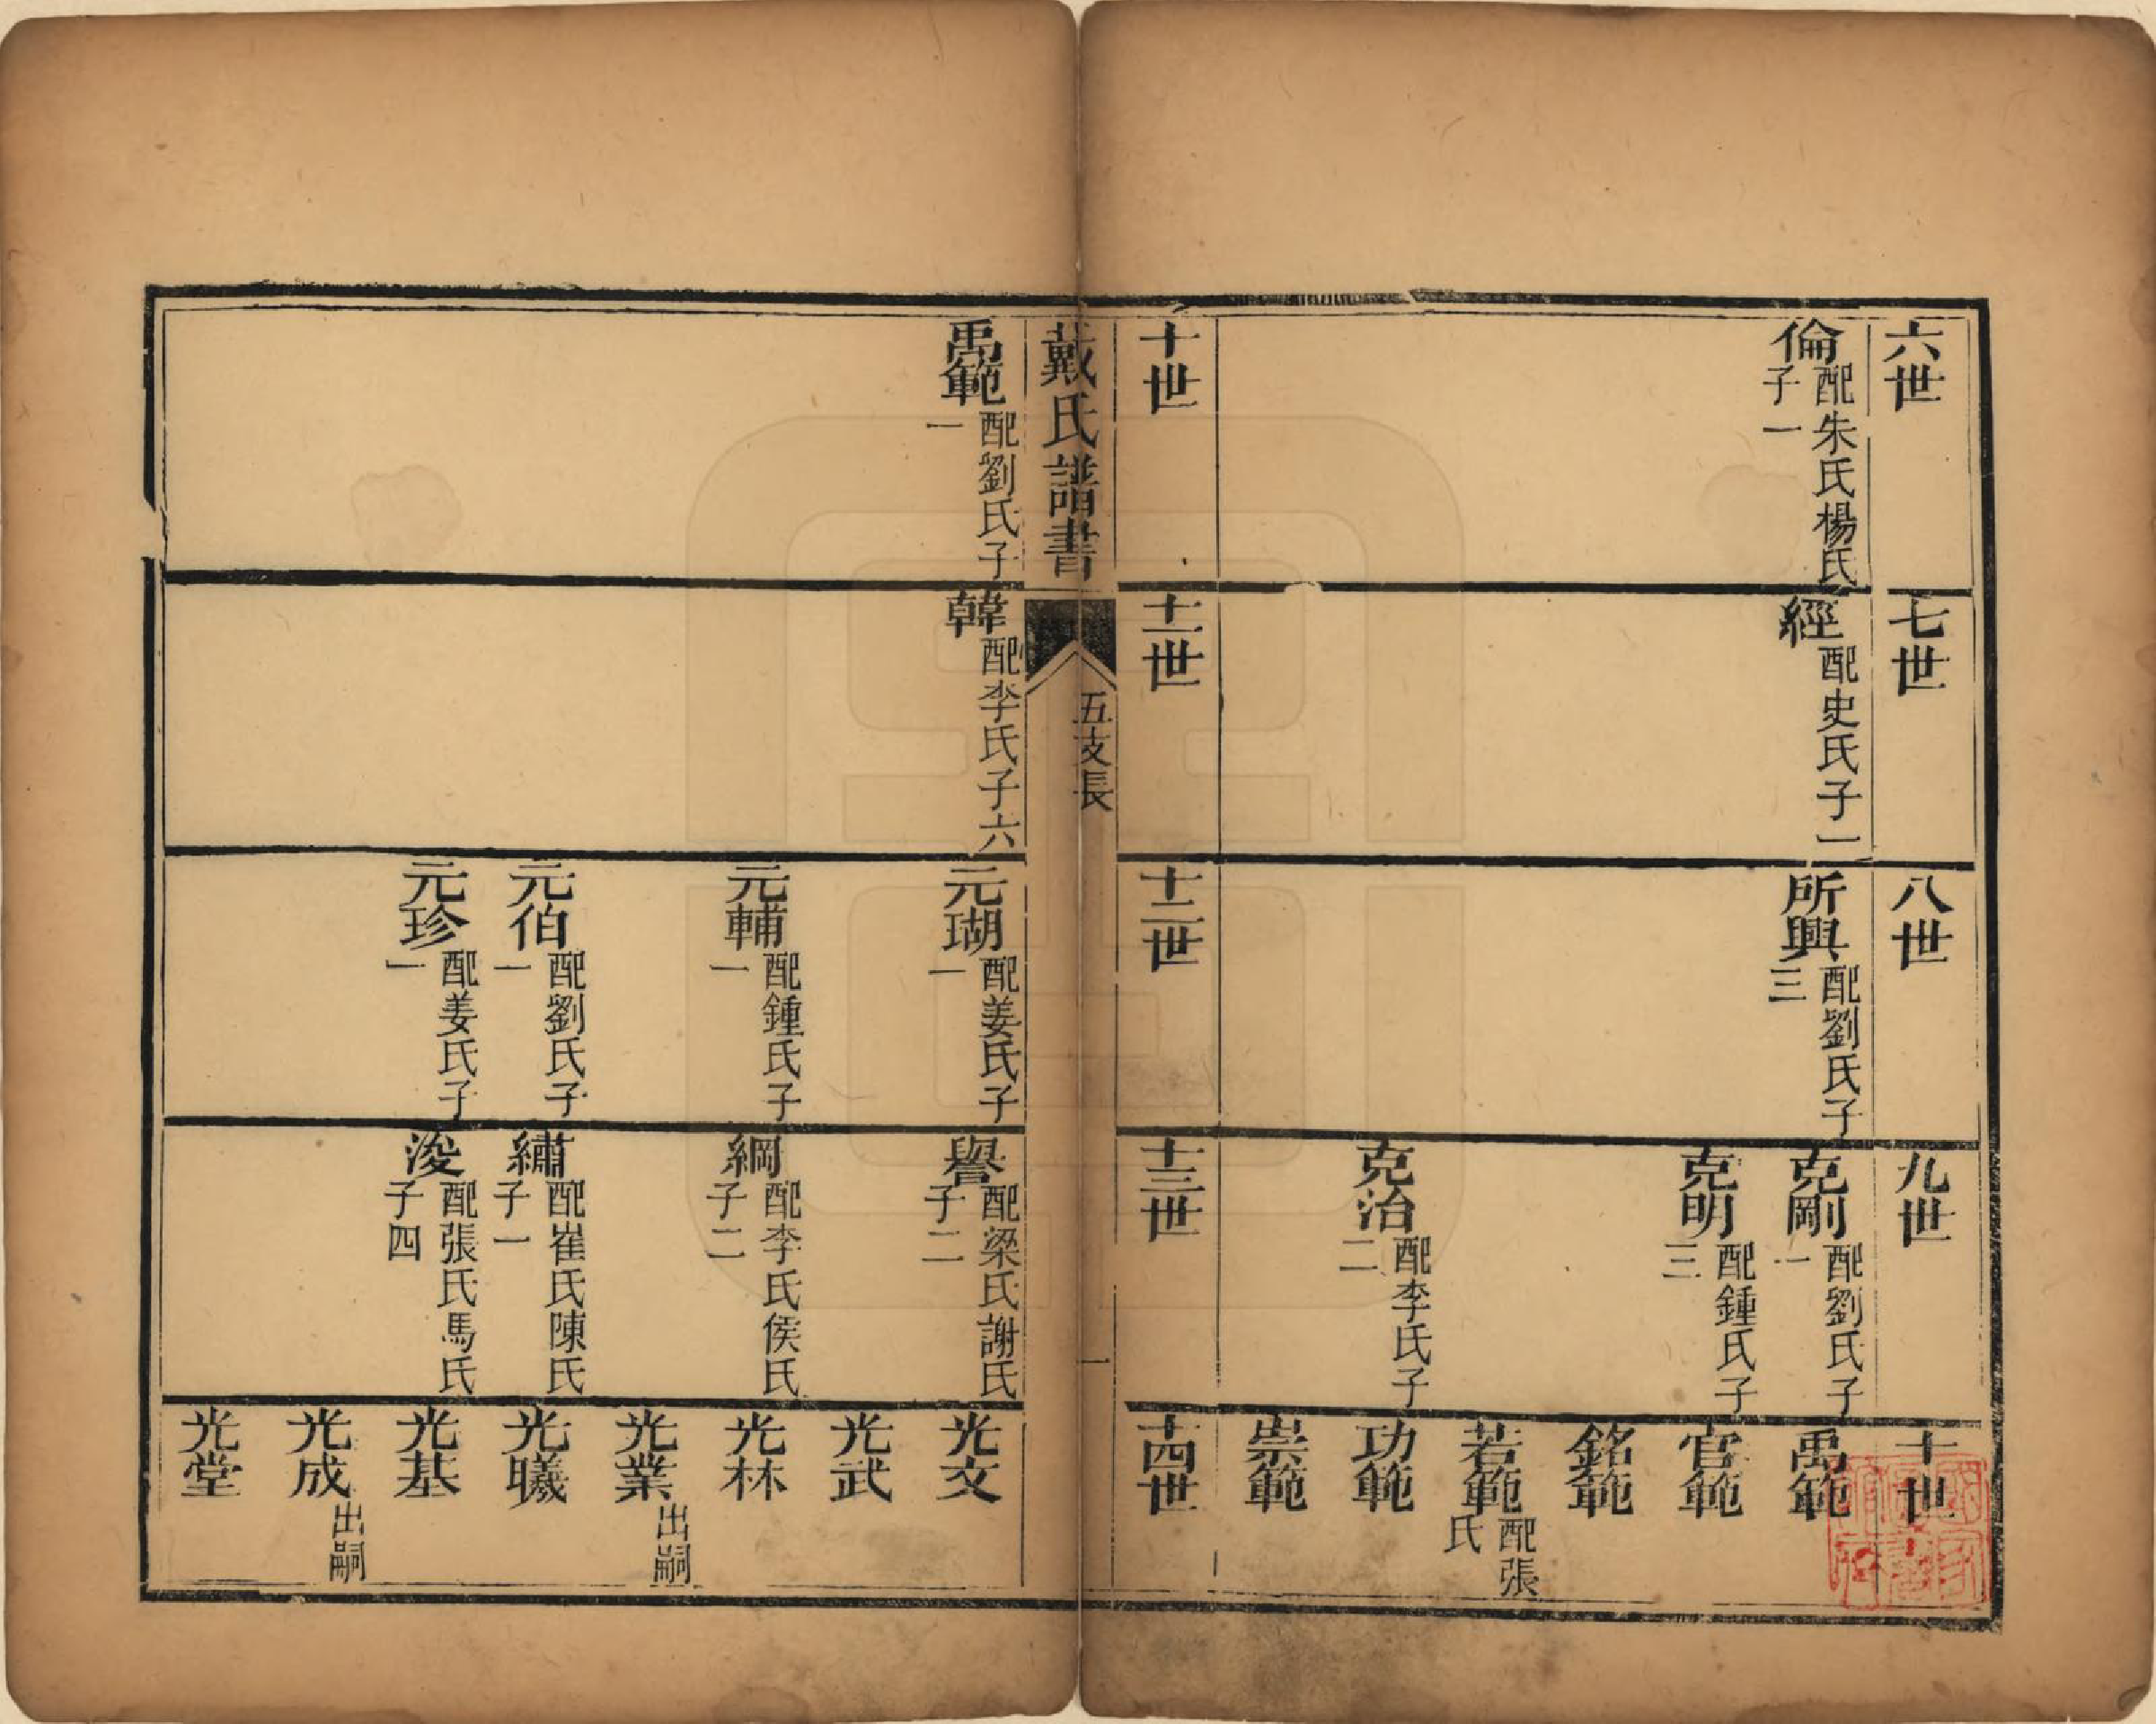 六世
七世
八世
九世
十世
倫 配朱氏楊氏子一
經 配史氏子一
所興 配劉氏子三
克剛 配劉氏子一
禹範
克明 配鍾氏子三
官範
銘範
若範 配張氏
克治 配李氏子二
功範
崇範
十世
十一世
十二世
十三世
十四世
戴氏譜書
五支長
一
禹範 配劉氏子一
韓 配李氏子六
元瑚 配姜氏子一
譽 配梁氏謝氏子二
光文
光武
元輔 配鍾氏子一
綱 配李氏侯氏子二
光林
光業 出嗣
元伯 配劉氏子一
繡 配崔氏陳氏子一
光曦
元珍 配姜氏子一
浚 配張氏馬氏子四
光基
光成 出嗣
光堂